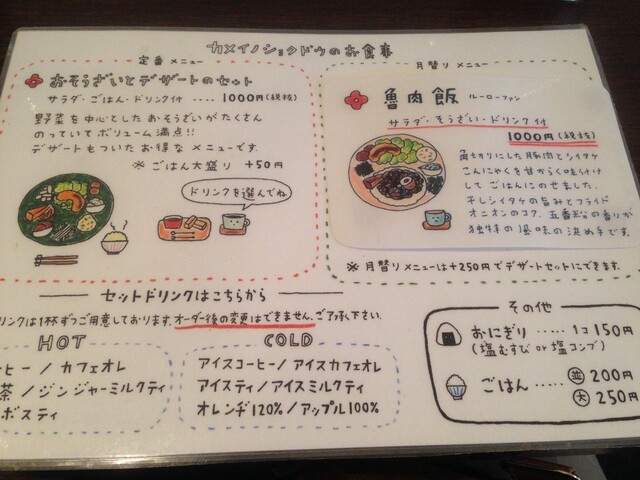 カメイノショクドウのお食事
定番 メニュー
おそうざいとデザートのセット
サラダ・ごはん・ドリンク付 ‥‥ 1000円(税抜)
野菜を中心としたおそうざいがたくさん
のっていてボリューム満点!!
デザートもついたお得なメニューです.
※ ごはん大盛り +50円
ドリンクを選んでね
月替り メニュー
魯肉飯 ルーローファン
サラダ・そうざい・ドリンク付
1000円(税抜)
角切りにした豚肉とシイタケ
こんにゃくを甘からく味付け
して ごはんにのせました.
干しシイタケの旨みとフライド
オニオンのコク、五香粉の香りが
独特の風味の決め手です.
※ 月替りメニューは+250円でデザートセットにできます.
セットドリンクはこちらから
リンクは1杯ずつご用意しております.オーダー後の変更はできません.ご了承下さい.
HOT
ーヒー / カフェオレ
茶 / ジンジャーミルクティ
ボスティ
COLD
アイスコーヒー / アイスカフェオレ
アイスティ / アイスミルクティ
オレンヂ120% / アップル100%
その他
おにぎり ‥‥‥ 1コ 150円
(塩むすび or 塩コンブ)
ごはん ‥‥‥ 並 200円
大 250円